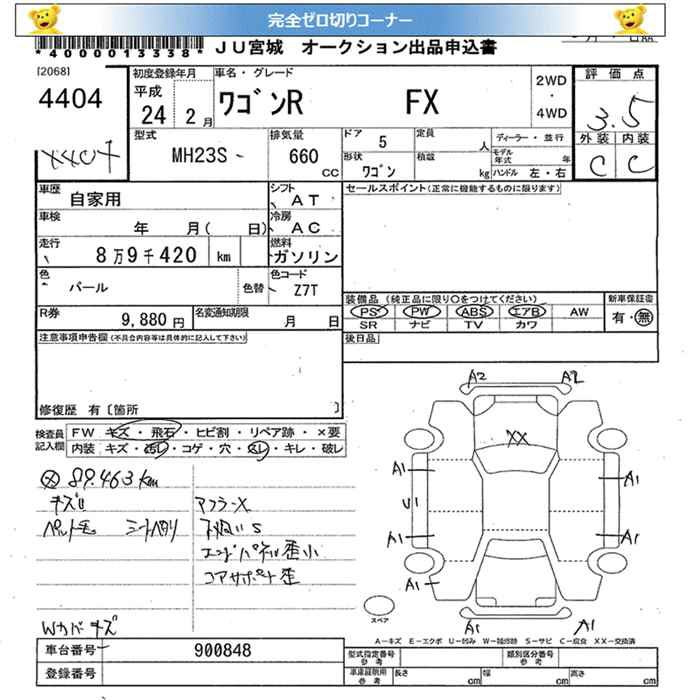 完全ゼロ切りコーナー
*4000013338* JU宮城 オークション出品申込書
[2068]
4404
4404
初度登録年月
平成
24 2月
車名・グレード
ワゴンR FX
2WD
・
4WD
評価点
3.5
外装 内装
C C
型式
MH23S -
排気量
660 CC
ドア 5
形状 ワゴン
定員 人
積載 kg
ディーラー・並行
モデル年式 年
ハンドル 左・右
車歴 自家用
シフト AT
セールスポイント(正常に機能するものに限ります)
車検 年 月( 日)
冷房 AC
走行 8万9千420 km
燃料 ガソリン
色 パール 色替
色コード Z7T
装備品(純正品に限り○をつけてください)
新車保証書
PS PW ABS エアB AW
SR ナビ TV カワ
有・無
R券 9,880円
名変通知期限 月 日
後日品
注意事項申告欄(不具合内容等は具体的に記入して下さい)
修復歴 有〔箇所 〕
検査員記入欄
FW キズ・飛石・ヒビ割・リペア跡・×要
内装 キズ・汚レ・コゲ・穴・スレ・キレ・破レ
89.463km
キズU
マフラーX
下廻いS
エンドパネル歪小
コアサポート歪
Wカバーキズ
A2 A2
XX
A1 A1
U1
A1 A1
A1
A1 A1
スペア
A-キズ E-エクボ U-凹み W-補修跡 S-サビ C-腐食 XX-交換済
車台番号 900848
登録番号
型式指定番号 参考
類別区分番号 参考
車庫証明用 参考
長さ cm
幅 cm
高さ cm